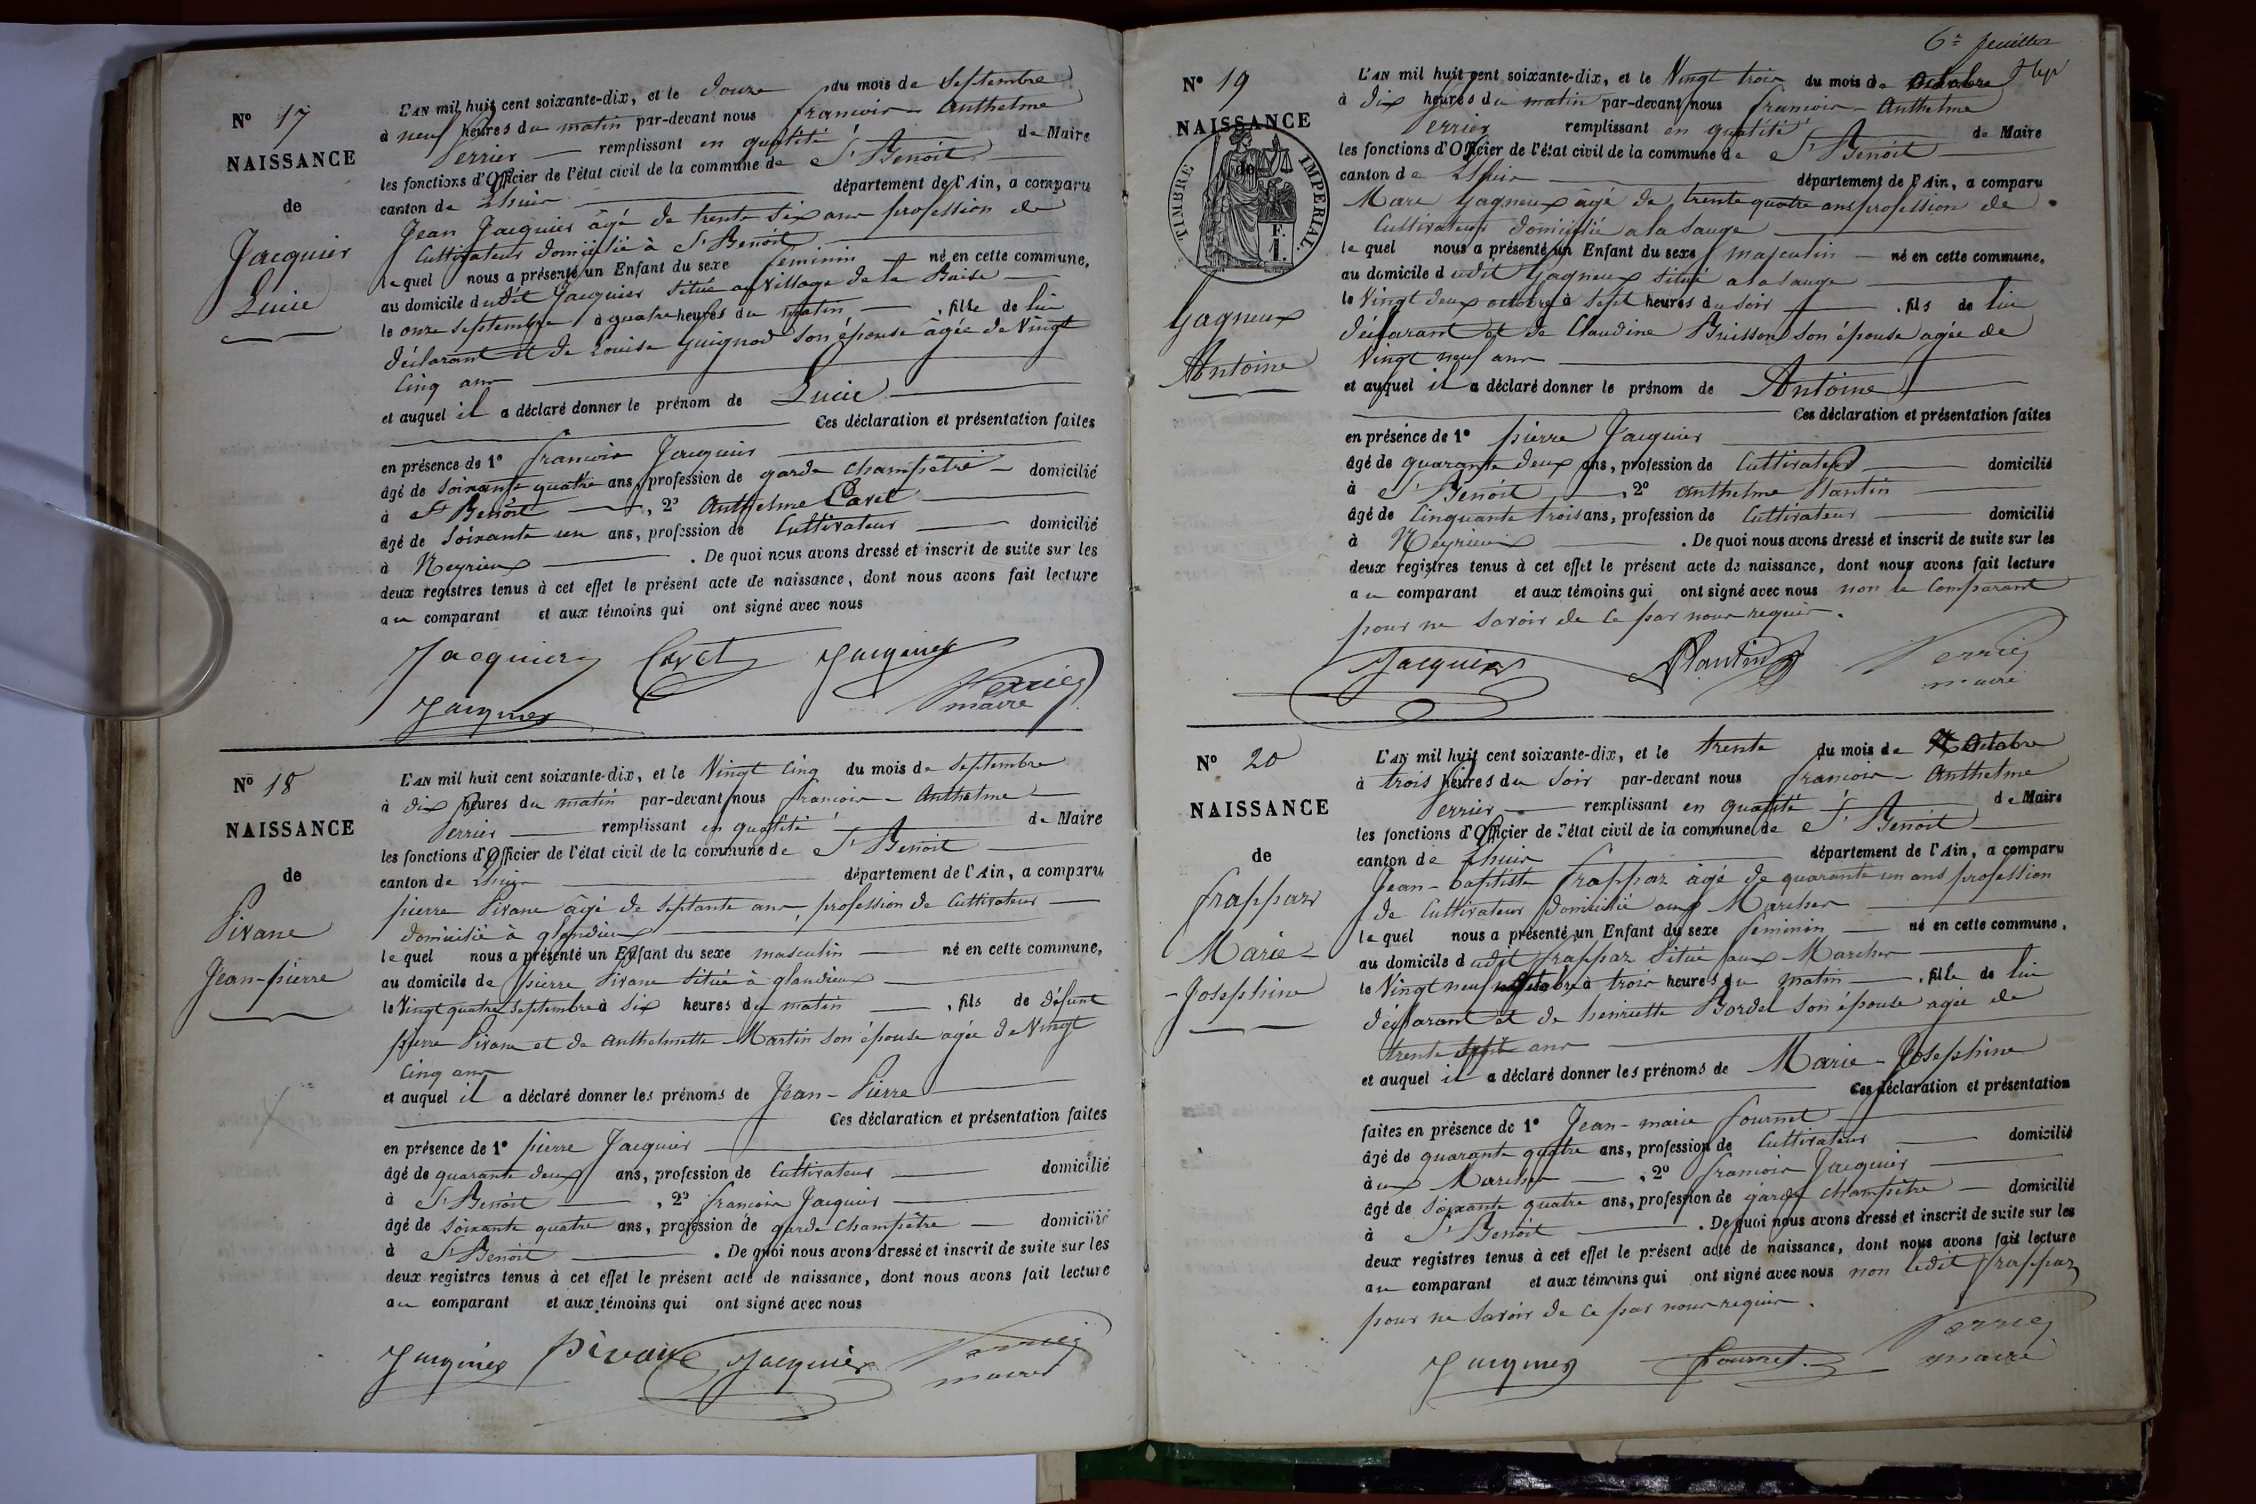 N° 17
NAISSANCE
de
Jacquier
Lucie
L'AN mil huit cent soixante-dix, et le douze du mois de Septembre
à neuf heures du matin par-devant nous francois - Anthelme
Perrier remplissant en qualité de Maire
les fonctions d'Officier de l'état civil de la commune de St Benoit
canton de Lhuis département de l'Ain, a comparu
Jean Jacquier âgé de trente six ans profession de
Cultivateur domicilié à St Benoit
lequel nous a présenté un Enfant du sexe feminin né en cette commune,
au domicile dudit Jacquier situé au village de la
le onze septembre à quatre heures du matin , fille de lui
déclarant et de Louise Guignod son épouse âgée de Vingt
Cinq ans
et auquel il a déclaré donner le prénom de Lucie
Ces déclaration et présentation faites
en présence de 1° francois Jacquier
âgé de soixante quatre ans, profession de garde champêtre domicilié
à St Benoit , 2° Anthelme Cavet
âgé de soixante un ans, profession de Cultivateur domicilié
à Neyrieux . De quoi nous avons dressé et inscrit de suite sur les
deux registres tenus à cet effet le présent acte de naissance, dont nous avons fait lecture
au comparant et aux témoins qui ont signé avec nous
Jacquier Cavet Jacquier
Jacquier Perrier
maire
N° 18
NAISSANCE
de
Pivane
Jean-pierre
L'AN mil huit cent soixante-dix, et le Vingt Cinq du mois de Septembre
à dix heures du matin par-devant nous francois - Anthelme
Perrier remplissant en qualité de Maire
les fonctions d'Officier de l'état civil de la commune de St Benoit
canton de Lhuis département de l'Ain, a comparu
pierre Pivane âgé de septante ans, profession de Cultivateur
domicilié à glandieux
lequel nous a présenté un Enfant du sexe masculin né en cette commune,
au domicile de pierre Pivane situé à glandieux
le Vingt quatre Septembre à six heures du matin , fils de défunt
pierre Pivane et de Anthelmette Martin son épouse agée de Vingt
Cinq ans
et auquel il a déclaré donner les prénoms de Jean - Pierre
Ces déclaration et présentation faites
en présence de 1° pierre Jacquier
âgé de quarante deux ans, profession de Cultivateur domicilié
à St Benoit , 2° francois Jacquier
âgé de soixante quatre ans, profession de garde champêtre domicilié
à St Benoit . De quoi nous avons dressé et inscrit de suite sur les
deux registres tenus à cet effet le présent acte de naissance, dont nous avons fait lecture
au comparant et aux témoins qui ont signé avec nous
Jacquier Pivane Jacquier Perrier
maire
6e feuillet
N° 19
NAISSANCE
de
TIMBRE IMPERIAL.
1 F.
Gagneux
Antoine
L'AN mil huit cent soixante-dix, et le Vingt trois du mois de octobre
à dix heures du matin par-devant nous francois - Anthelme
Perrier remplissant en qualité de Maire
les fonctions d'Officier de l'état civil de la commune de St Benoit
canton de Lhuis département de l'Ain, a comparu
Marc Gagneux agé de trente quatre ans profession de
Cultivateur domicilié a la sauge
lequel nous a présenté un Enfant du sexe masculin né en cette commune,
au domicile dudit Gagneux situé a la sauge
le Vingt deux octobre à sept heures du soir , fils de lui
déclarant et de Claudine Buisson son épouse agée de
Vingt neuf ans
et auquel il a déclaré donner le prénom de Antoine
Ces déclaration et présentation faites
en présence de 1° pierre Jacquier
âgé de quarante deux ans, profession de Cultivateur domicilié
à St Benoit , 2° Anthelme Plantin
âgé de Cinquante trois ans, profession de Cultivateur domicilié
à Neyrieux . De quoi nous avons dressé et inscrit de suite sur les
deux registres tenus à cet effet le présent acte de naissance, dont nous avons fait lecture
au comparant et aux témoins qui ont signé avec nous non le Comparant
pour ne savoir de ce par nous requis.
Jacquier Plantin Perrier
maire
N° 20
NAISSANCE
de
frappaz
Marie -
- Josephine
L'AN mil huit cent soixante-dix, et le trente du mois de Octobre
à trois heures du soir par-devant nous francois - Anthelme
Perrier remplissant en qualité de Maire
les fonctions d'Officier de l'état civil de la commune de St Benoit
canton de Lhuis département de l'Ain, a comparu
Jean - baptiste frappaz âgé de quarante un ans profession
de Cultivateur domicilié aux Marches
lequel nous a présenté un Enfant du sexe feminin né en cette commune,
au domicile dudit frappaz situé aux Marches
le Vingt neuf octobre à trois heures du matin , fille de lui
déclarant et de henriette Bordel son épouse agée de
trente sept ans
et auquel il a déclaré donner les prénoms de Marie - Josephine
Ces déclaration et présentation
faites en présence de 1° Jean - marie fournet
âgé de quarante quatre ans, profession de Cultivateur domicilié
aux Marches , 2° francois Jacquier
âgé de soixante quatre ans, profession de garde champêtre domicilié
à St Benoit . De quoi nous avons dressé et inscrit de suite sur les
deux registres tenus à cet effet le présent acte de naissance, dont nous avons fait lecture
au comparant et aux témoins qui ont signé avec nous non ledit frappaz
pour ne savoir de ce par nous requis.
Jacquier fournet Perrier
maire